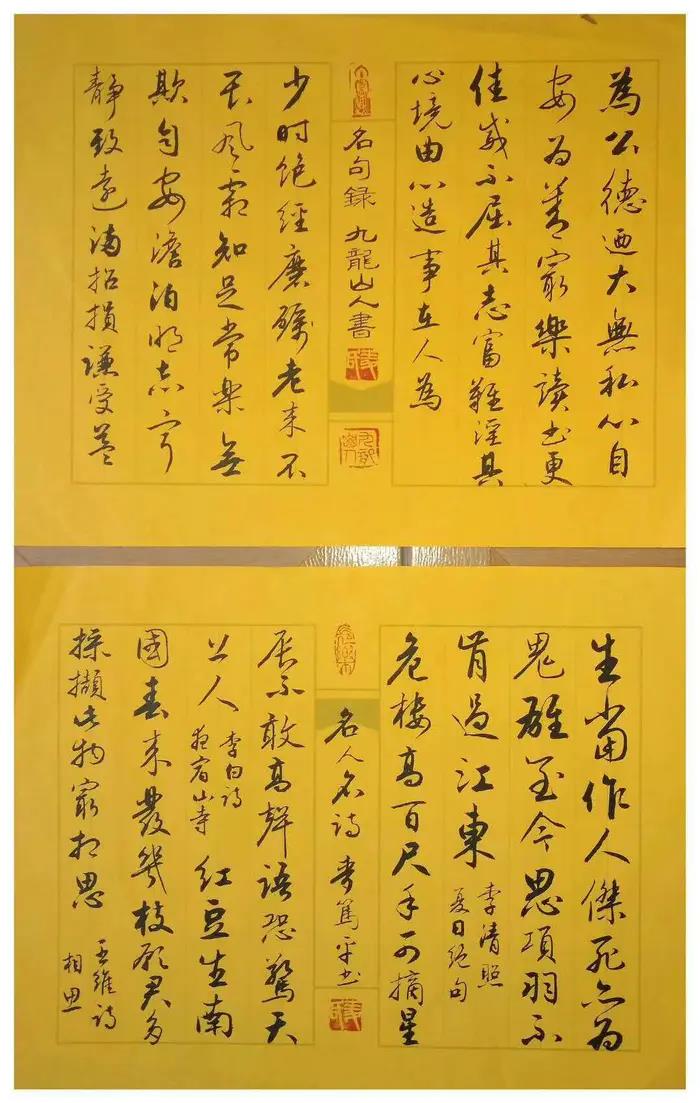 為公德迺大無私心自
安为善最樂讀书更
佳威不屈其志富難淫其
心境由心造事在人為
名句錄 九龍山人書
少时饱經磨礪老来不
畏风霜知足常樂無
欺自安澹泊明志宁
静致遠满招損謙受益
生當作人傑死亦为
鬼雄至今思項羽不
肯過江東
李清照
夏日绝句
危樓高百尺手可摘星
名人名诗 篤平书
辰不敢高聲語恐驚天
上人
李白诗
夜宿山寺
紅豆生南
國春来發幾枝願君多
採擷此物最相思
王維诗
相思